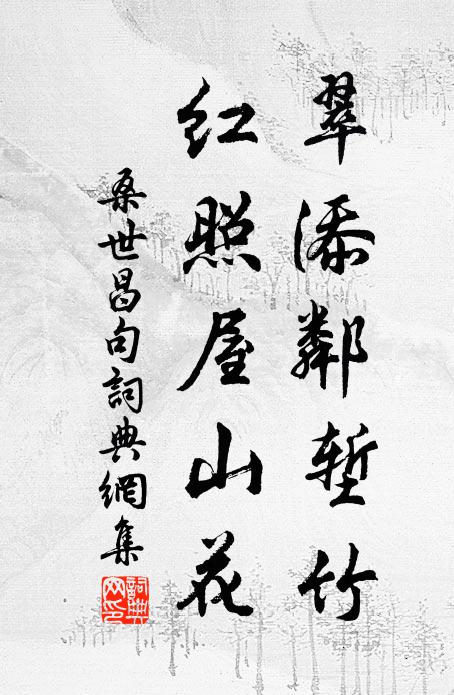 翠添鄰塹竹
紅照屋山花
桑世昌句詞典網集